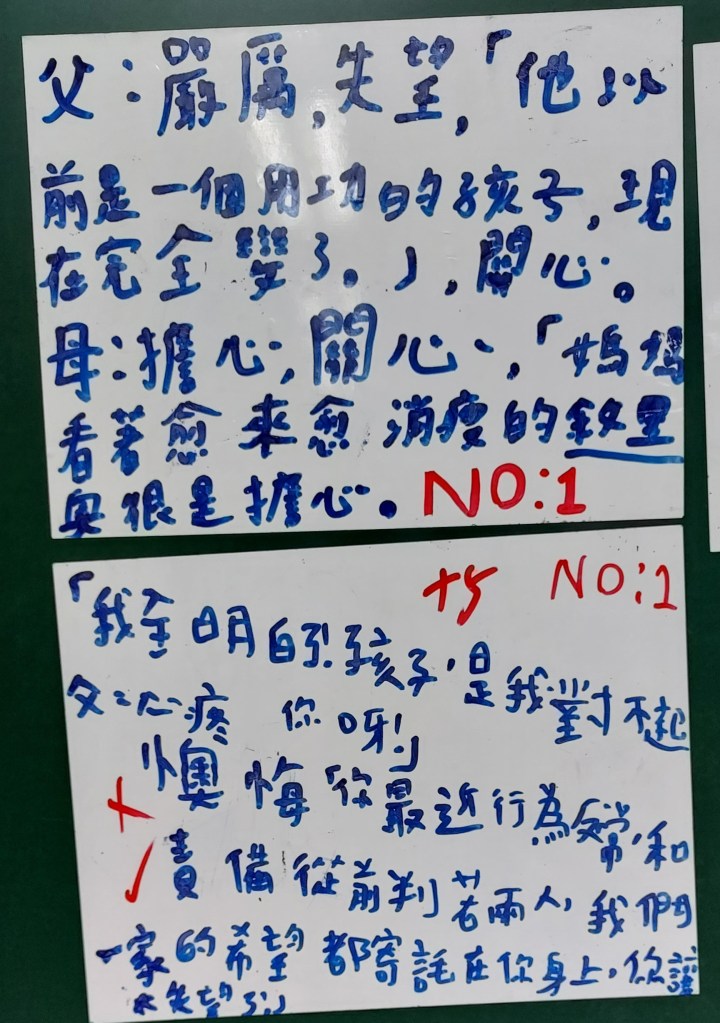 父：嚴厲,失望,「他以
前是一個用功的孩子,現
在完全變了。」,關心。
母：擔心,關心、,「媽媽
看著愈來愈消瘦的敘里
奧很是擔心。NO:1
+5 NO:1
「我全明白了!孩子,是我對不起
父:心疼 你呀!」
懊悔「你最近行為反常,和
責備 從前判若兩人,我們
一家的希望都寄託在你身上,你
失望了!」